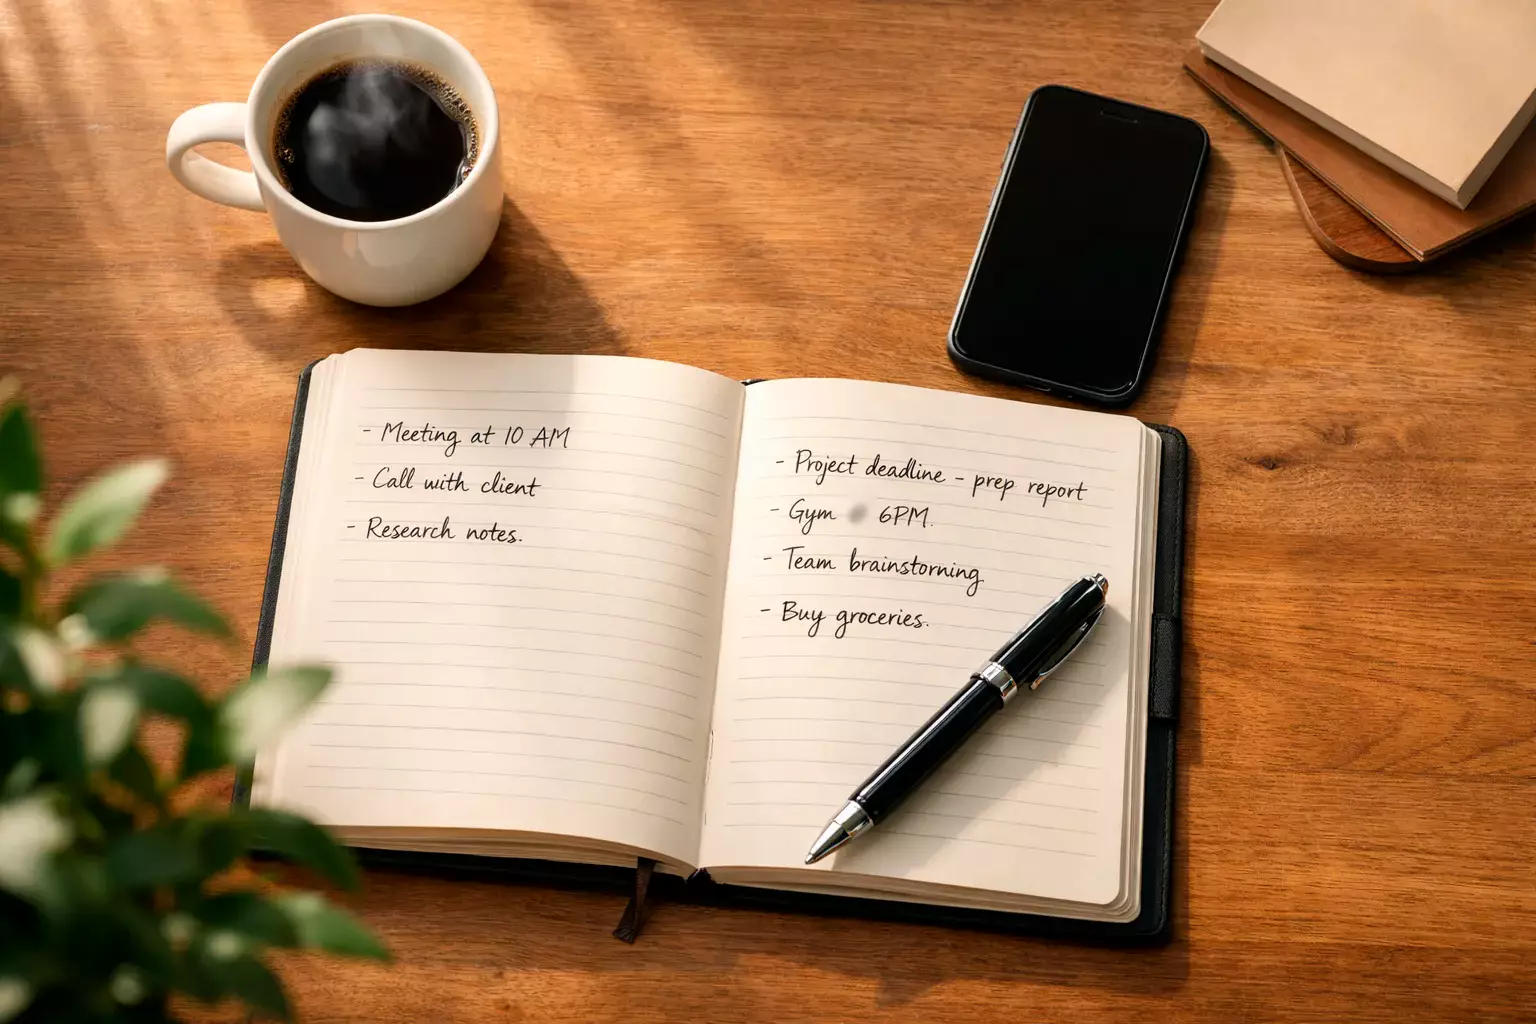 - Meeting at 10 AM
- Call with client
- Research notes.
- Project deadline - prep report
- Gym 6PM.
- Team brainstorning
- Buy groceries.